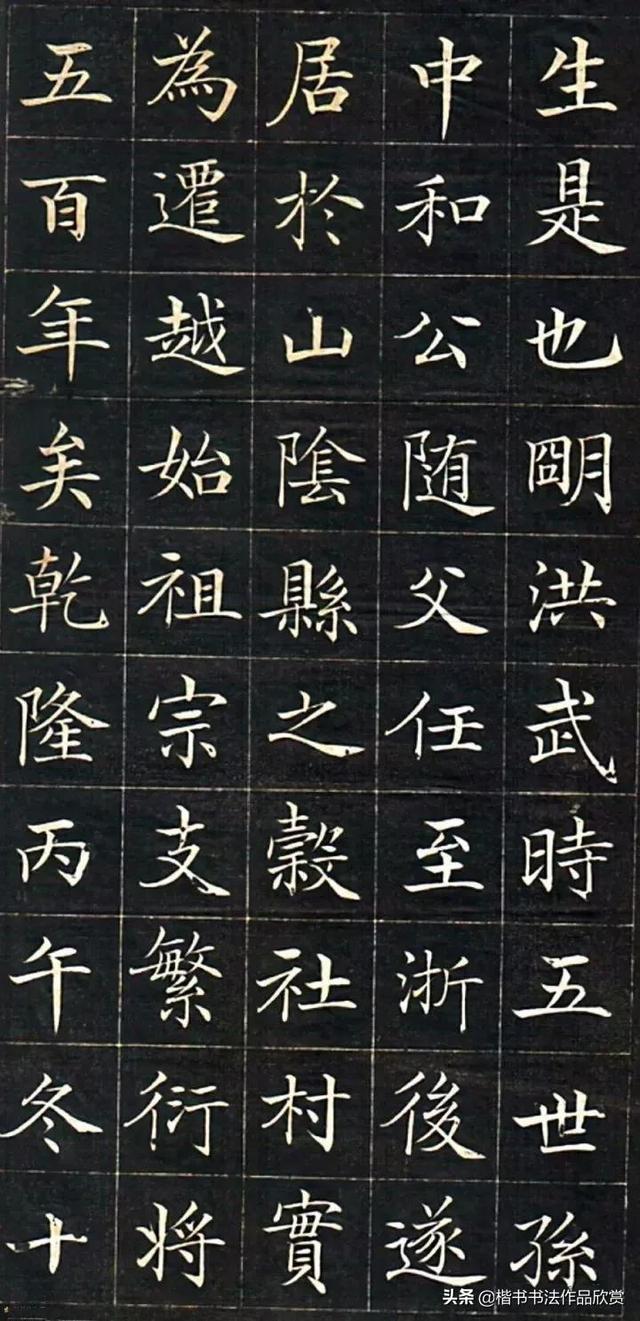 生是也朙洪武時五世孫
中和公随父任至浙後遂
居於山陰縣之穀社村實
為遷越始祖宗支繁衍将
五百年矣乾隆丙午冬十
头条 @楷书书法作品欣赏